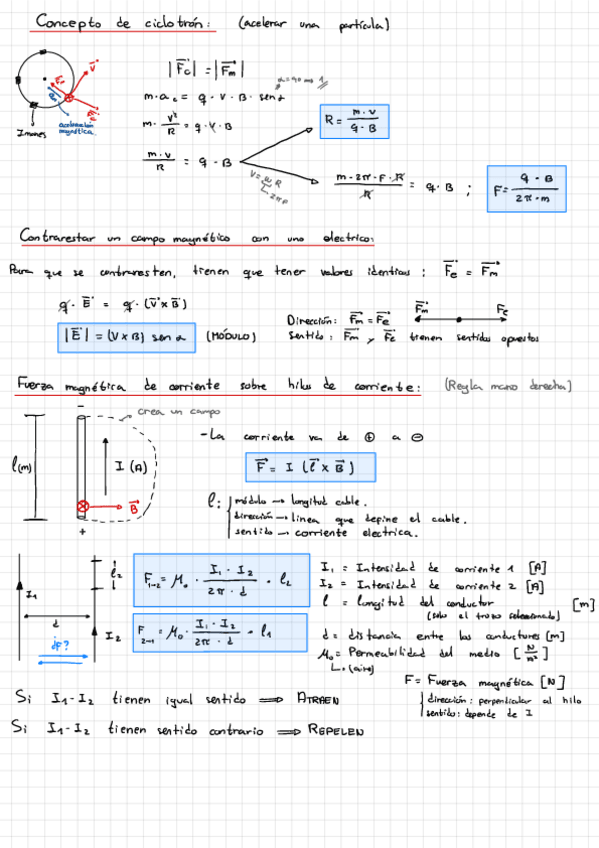 Concepto de ciclotrón: (acelerar una partícula)
|F⃗c| = |F⃗m|
α=90 ⇒ 1
m · a c = q · V · B · sen α
m · v²/R = q · V · B
m · v / R = q · B
R = m · v / q · B
V = ω R
2πF
m · 2π · F · R / R = q · B ; F = q · B / 2π · m
Fm
V⃗
aceleración
magnética
Imanes
Contrarestar un campo magnético con uno electrico:
Para que se contraresten, tienen que tener valores identicos : F⃗e = F⃗m
q · E⃗ = q · (V⃗ x B⃗)
|E⃗| = (V x B) sen α (MÓDULO)
Dirección: F⃗m = F⃗e
Sentido: F⃗m y F⃗e tienen sentidos opuestos
F⃗m F⃗e
Fuerza magnética de corriente sobre hilos de corriente: (Regla mano derecha)
-
crea un campo
l(m)
I (A)
B⃗
+
-La corriente va de ⊕ a ⊖
F⃗ = I (l⃗ x B⃗)
l: módulo → longitud cable.
dirección → linea que define el cable.
sentido → corriente electrica.
I1
l2
d
I2
¿p?
F1→2 = μo · I1 · I2 / 2π · d · l2
F2→1 = μo · I1 · I2 / 2π · d · l1
I1 = Intensidad de corriente 1 [A]
I2 = Intensidad de corriente 2 [A]
l = longitud del conductor [m]
(solo el trozo seleccionado)
d = distancia entre los conductores [m]
μo = Permeabilidad del medio [N/A²]
(aire)
F = Fuerza magnética [N]
dirección: perpendicular al hilo
sentido: depende de I
Si I1-I2 tienen igual sentido ⇒ ATRAEN
Si I1-I2 tienen sentido contrario ⇒ REPELEN